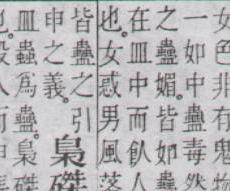 女色非有鬼物
一如中蠱毒然
之蠱媚。皆如蠱
在皿中而飲人
也。女惑男風落
皆蠱之引
申之義。
梟磔
皿蟲為蠱。梟磔